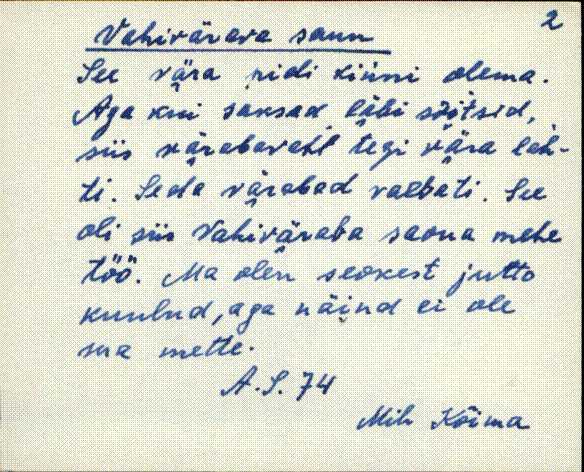 2
Vahivärava saun
See vära pidi kinni olema.
Aga kui saksad läbi sõitsid,
siis värabavaht tegi vära lah-
ti. Seda värabad valbati. See
oli siis Vahiväraba saona mehe
töö. Ma olen seokest jutto
kuulnud, aga näind ei ole
ma mette.
A. S. 74
Mih Kõima